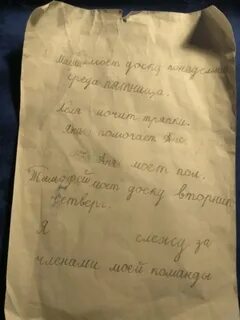 моет доску понедельник
среда пятница.
Ася мочит тряпки.
помогает
Аня моет пол.
Тимофей моет доску вторник
четверг.
Я слежу за
членами моей команды